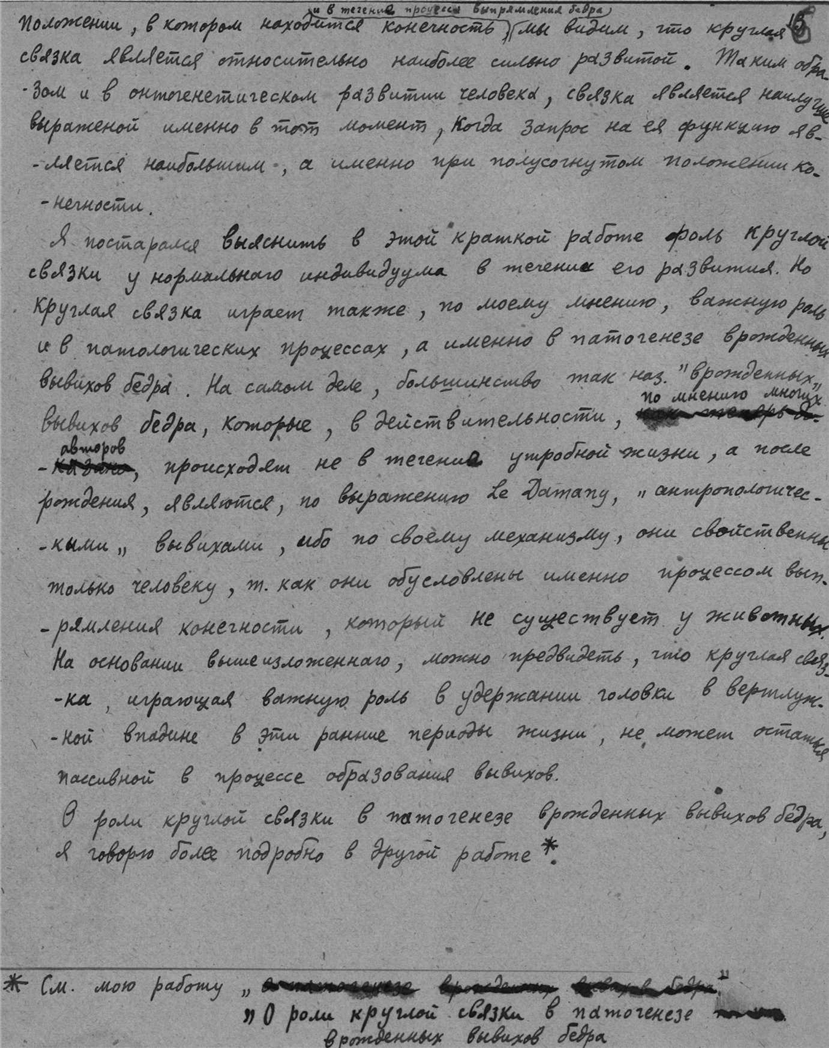 и в течение процесса выпрямления бедра,
положении, в котором находится конечность, мы видим, что круглая
связка является относительно наиболее сильно развитой. Таким обра
-зом и в онтогенетическом развитии человека, связка является наилучше
выраженой именно в тот момент, когда запрос на ея функцию яв-
-ляется наибольшим, а именно при полусогнутом положении ко-
-нечности.
Я постарался выяснить в этой краткой работе роль круглой
связки у нормальнаго индивидуума в течении его развития. Но
круглая связка играет также, по моему мнению, важную роль
и в патологических процессах, а именно в патогенезе врожденных
вывихов бедра. На самом деле, большинство так наз. "врожденных„
вывихов бедра, которые, в действительности, по мнению многих
авторов, происходят не в течение утробной жизни, а после
рождения, являются, по выражению Le Damany, „антропологичес-
-кими„ вывихами, ибо по своему механизму, они свойственны
только человеку, т. как они обусловлены именно процессом вып-
-рямления конечности, который не существует у животных.
На основании вышеизложеннаго, можно предвидеть, что круглая связ-
-ка, играющая важную роль в удержании головки в вертлуж-
-ной впадине в эти ранние периоды жизни, не может остаться
пассивной в процессе образования вывихов.
О роли круглой связки в патогенезе врожденных вывихов бедра,
я говорю более подробно в другой работе*.
* См. мою работу „о патогенезе врожденных вывихов бедра"
„О роли круглой связки в патогенезе
врожденных вывихов бедра